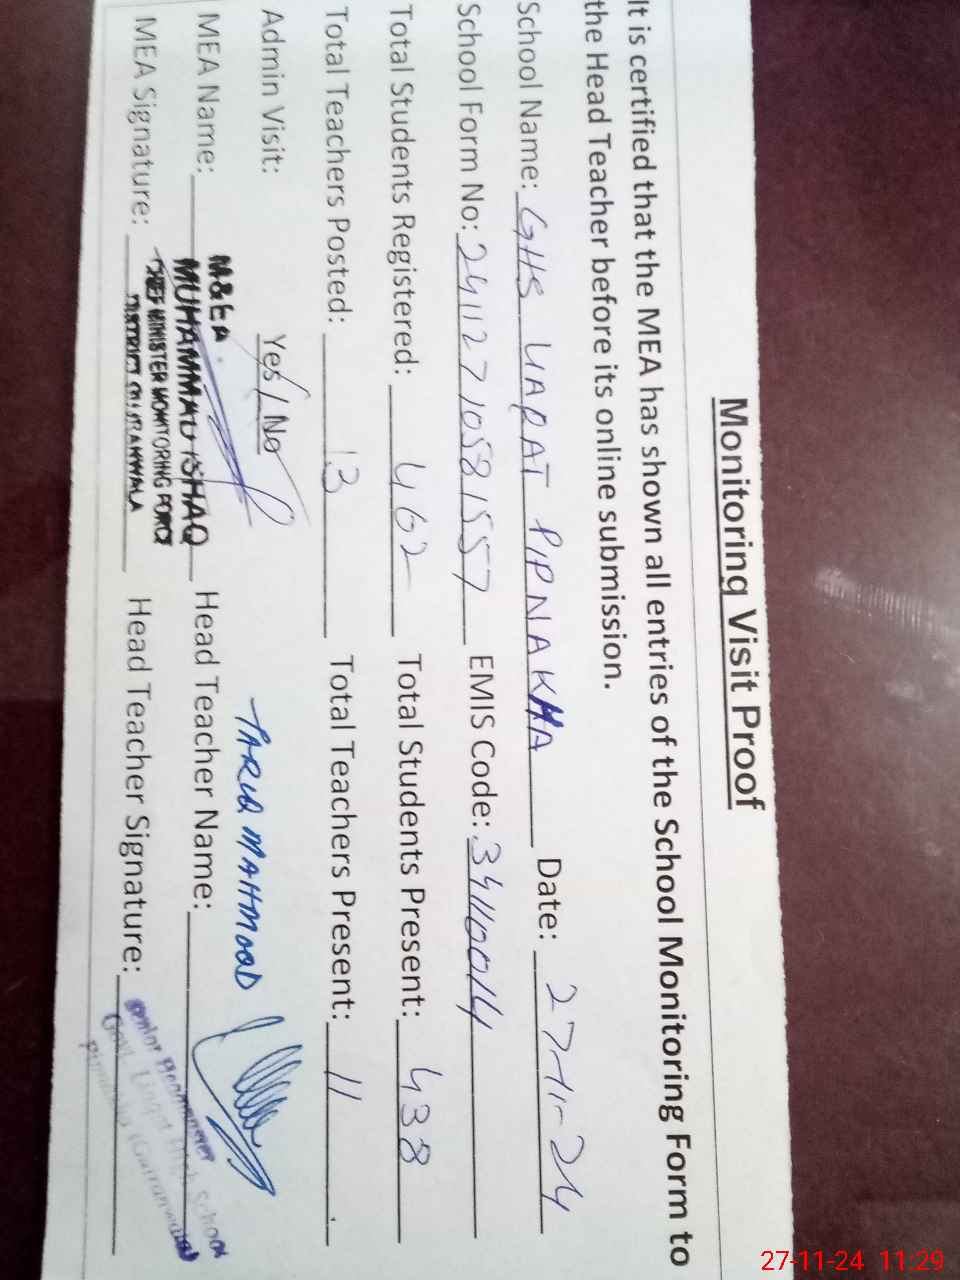 Monitoring Visit Proof
It is certified that the MEA has shown all entries of the School Monitoring Form to
the Head Teacher before its online submission.
School Name: GHS LIAQAT PIPNAKHA Date: 27-11-24
School Form No: 24112710581557 EMIS Code: 34110014
Total Students Registered: 462 Total Students Present: 438
Total Teachers Posted: 13 Total Teachers Present: 11
Admin Visit: Yes / No
TARIQ MAHMOOD
M&EA
MEA Name: MUHAMMAD ISHAQ Head Teacher Name:
CHIEF MINISTER MONITORING FORCE
MEA Signature: DISTRICT GUJRANWALA Head Teacher Signature:
Senior Headmaster
Govt. Liaqat High School
Pipnakha (Gujranwala)
27-11-24 11:29